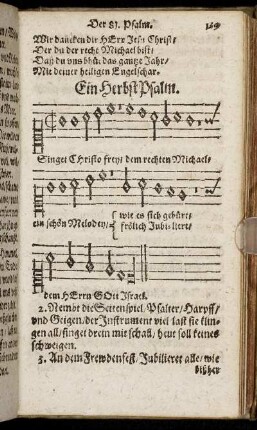 Der 81. Psalm.
Wir dancken dir HErr Jesu Christ/
Der du der recht Michael bist/
Daß du vns bhüt das gantze Jahr/
Mit deiner heiligen Engelschar.
Ein Herbst Psalm.
Singet Christo frey/ dem rechten Michael/
ein schön Melodey/ wie es sich gebürt/
frölich Jubiliert/
dem HErrn GOtt Israel.
2. Nembt die Seitenspiel/ Psalter/ Harpff/
vnd Geigen/ der Instrument viel last sie klin-
gen all/ singet drein mit schall/ heut soll keines
schweigen.
3. An dem Frewdenfest/ Jubilieret alle/ wie